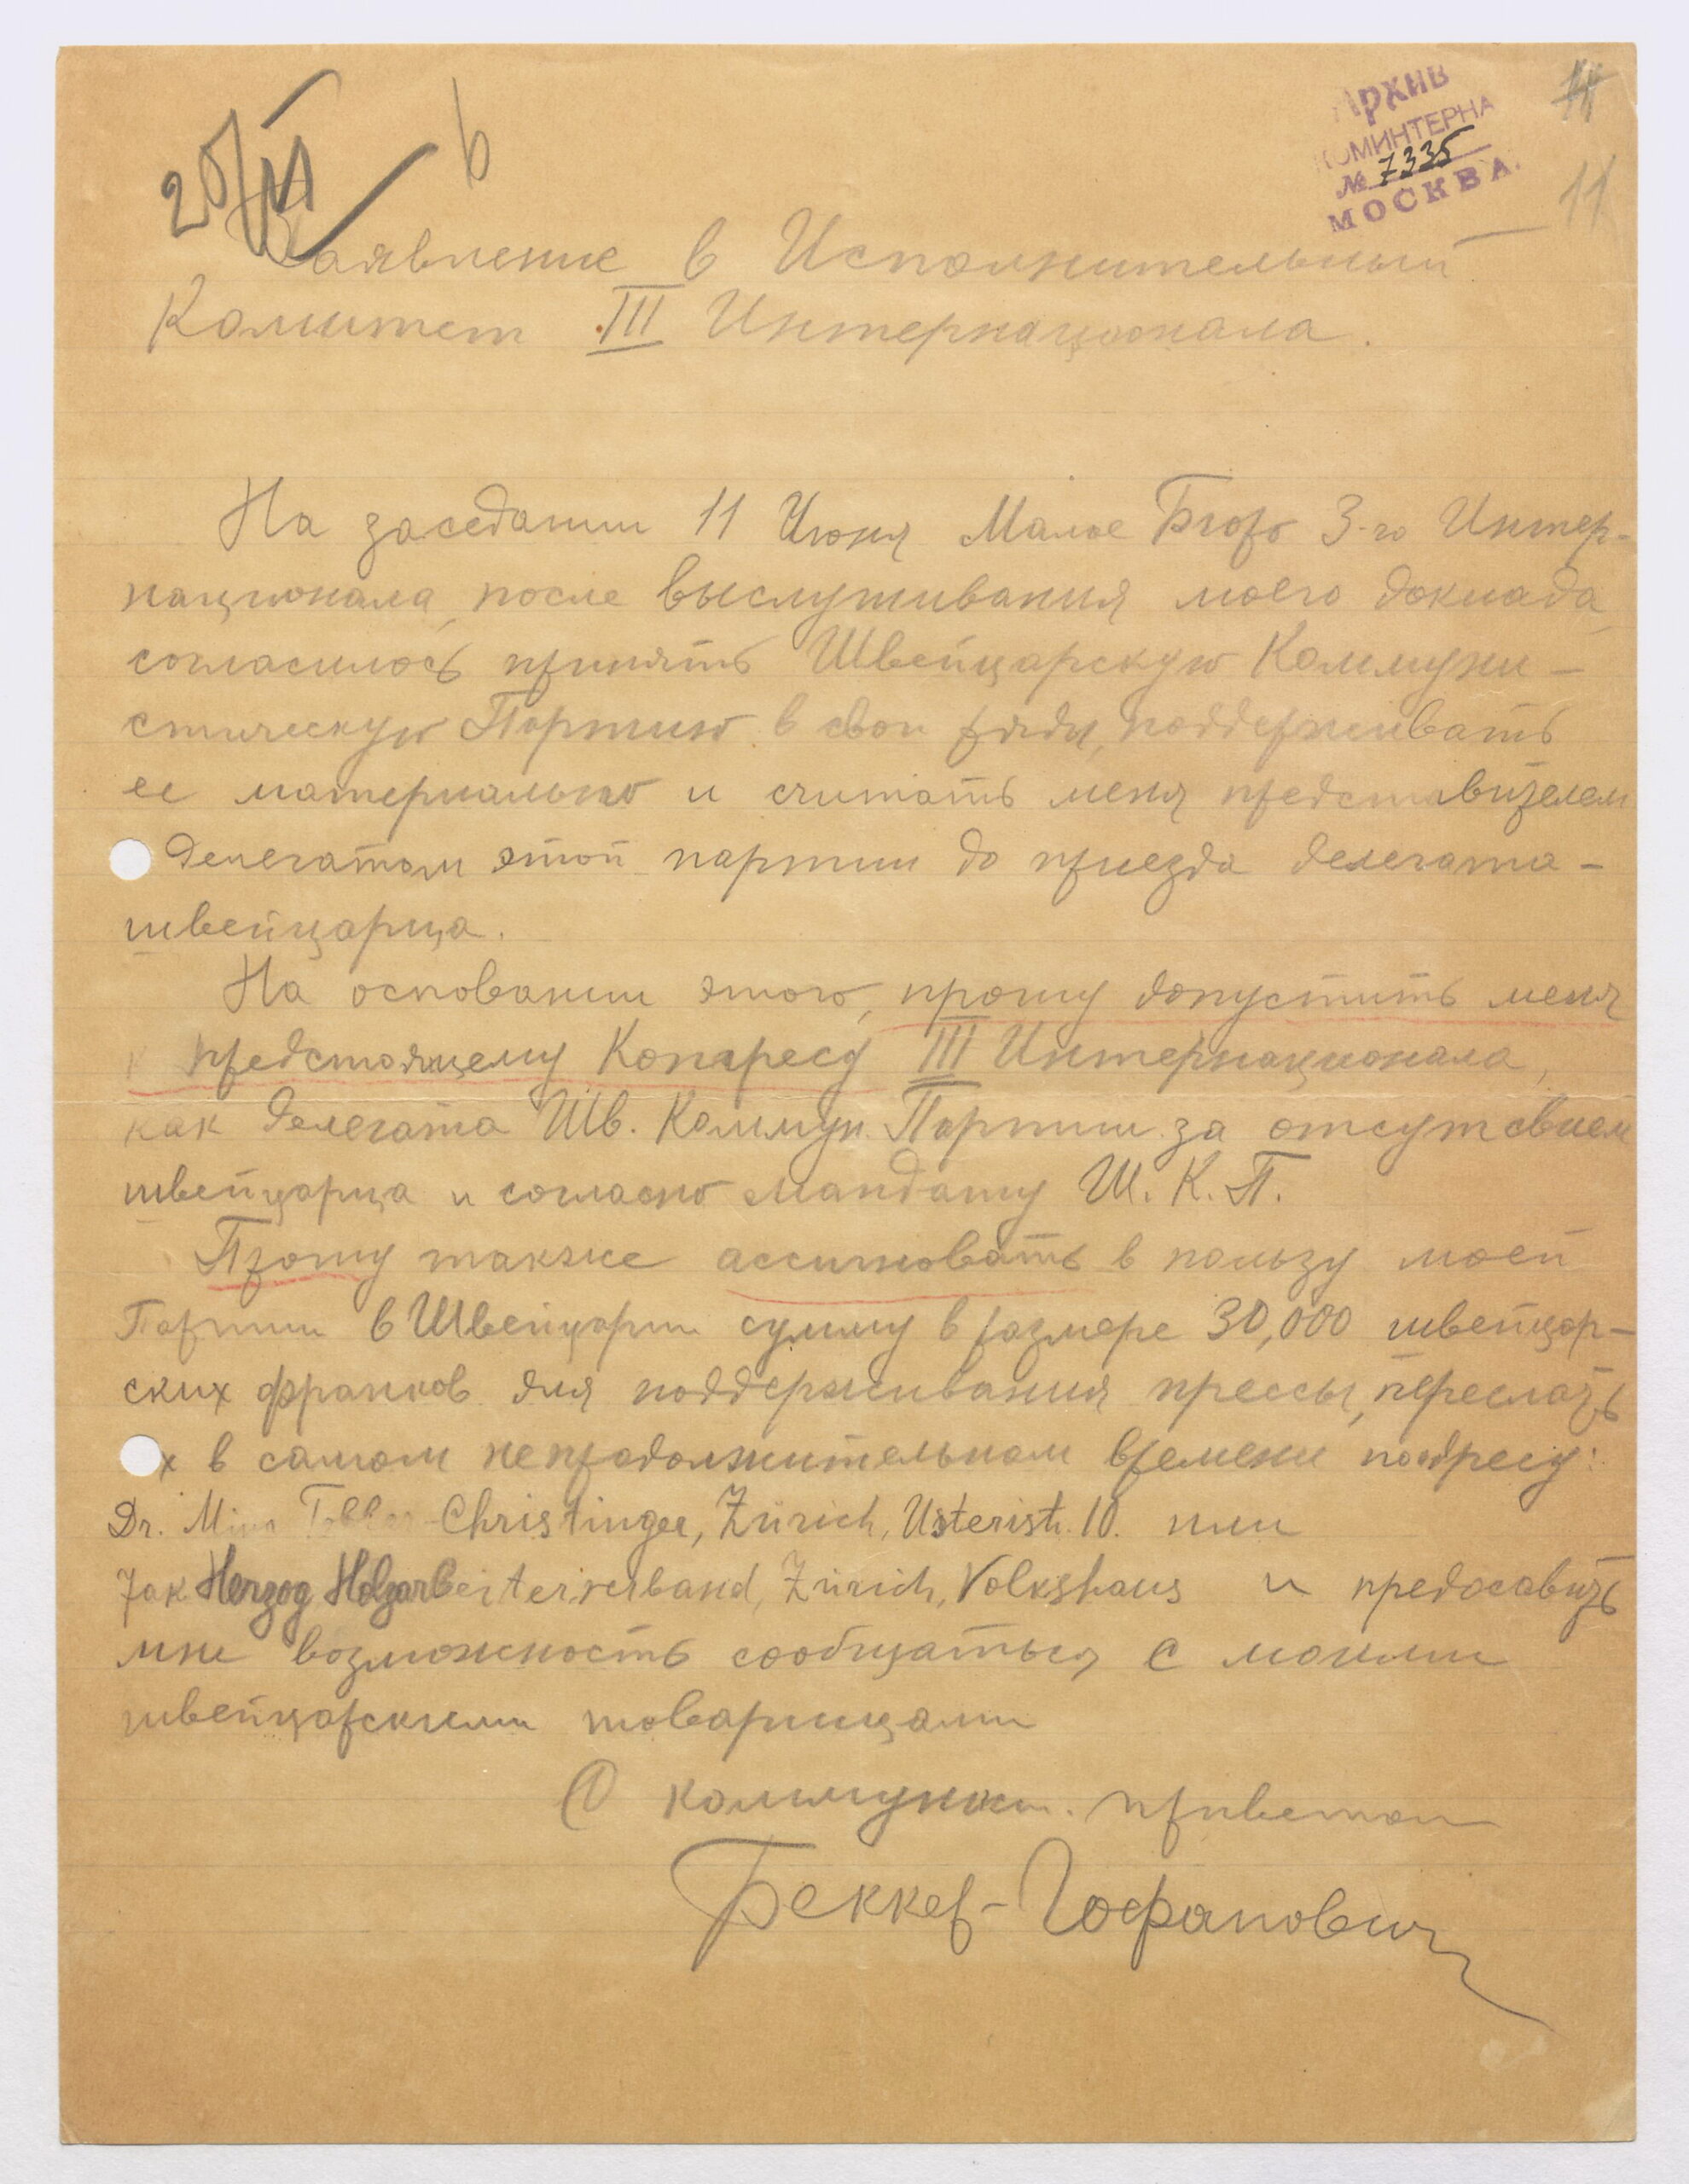 25/VI
b
Архив
Коминтерна
№ 7335
Москва.
11
11
Заявление в Исполнительный
Комитет III Интернационала.
На заседании 11 Июня Малое Бюро 3-го Интер-
национала, после выслушивания моего доклада,
согласилось принять Швейцарскую Коммуни-
стическую Партию в свои ряды, поддерживать
ее материально и считать меня представителем
делегатом этой партии до приезда делегата-
швейцарца.
На основании этого, прошу допустить меня
к предстоящему Конгресу III Интернационала,
как делегата Шв. Коммун. Партии за отсутсвием
швейцарца и согласно мандату Ш. К. П.
Прошу также ассигновать в пользу моей
Партии в Швейцарии сумму в размере 30,000 швейцар-
ских франков для поддерживания прессы, переслать
х в самом непродолжительном времени по адресу:
Dr. Mina Tobler-Christinger, Zürich, Usteristr. 10. или
Jak Herzog Holzarbeiterverband, Zürich, Volkshaus и предосавить
мне возможность сообщаться с моими
швейцарскими товарищами
С коммунист. приветом
Беккер-Гофанович